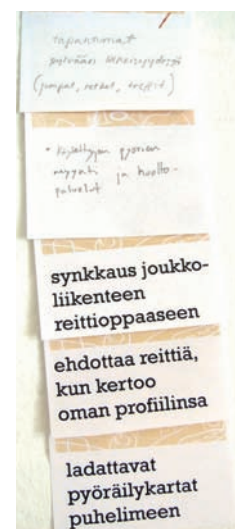 tapahtumat
(jumpat, retket, treffit)
• Käytettyjen pyörien
myynti ja huolto-
palvelut
synkkaus joukko-
liikenteen
reittioppaaseen
ehdottaa reittiä,
kun kertoo
oman profiilinsa
ladattavat
pyöräilykartat
puhelimeen